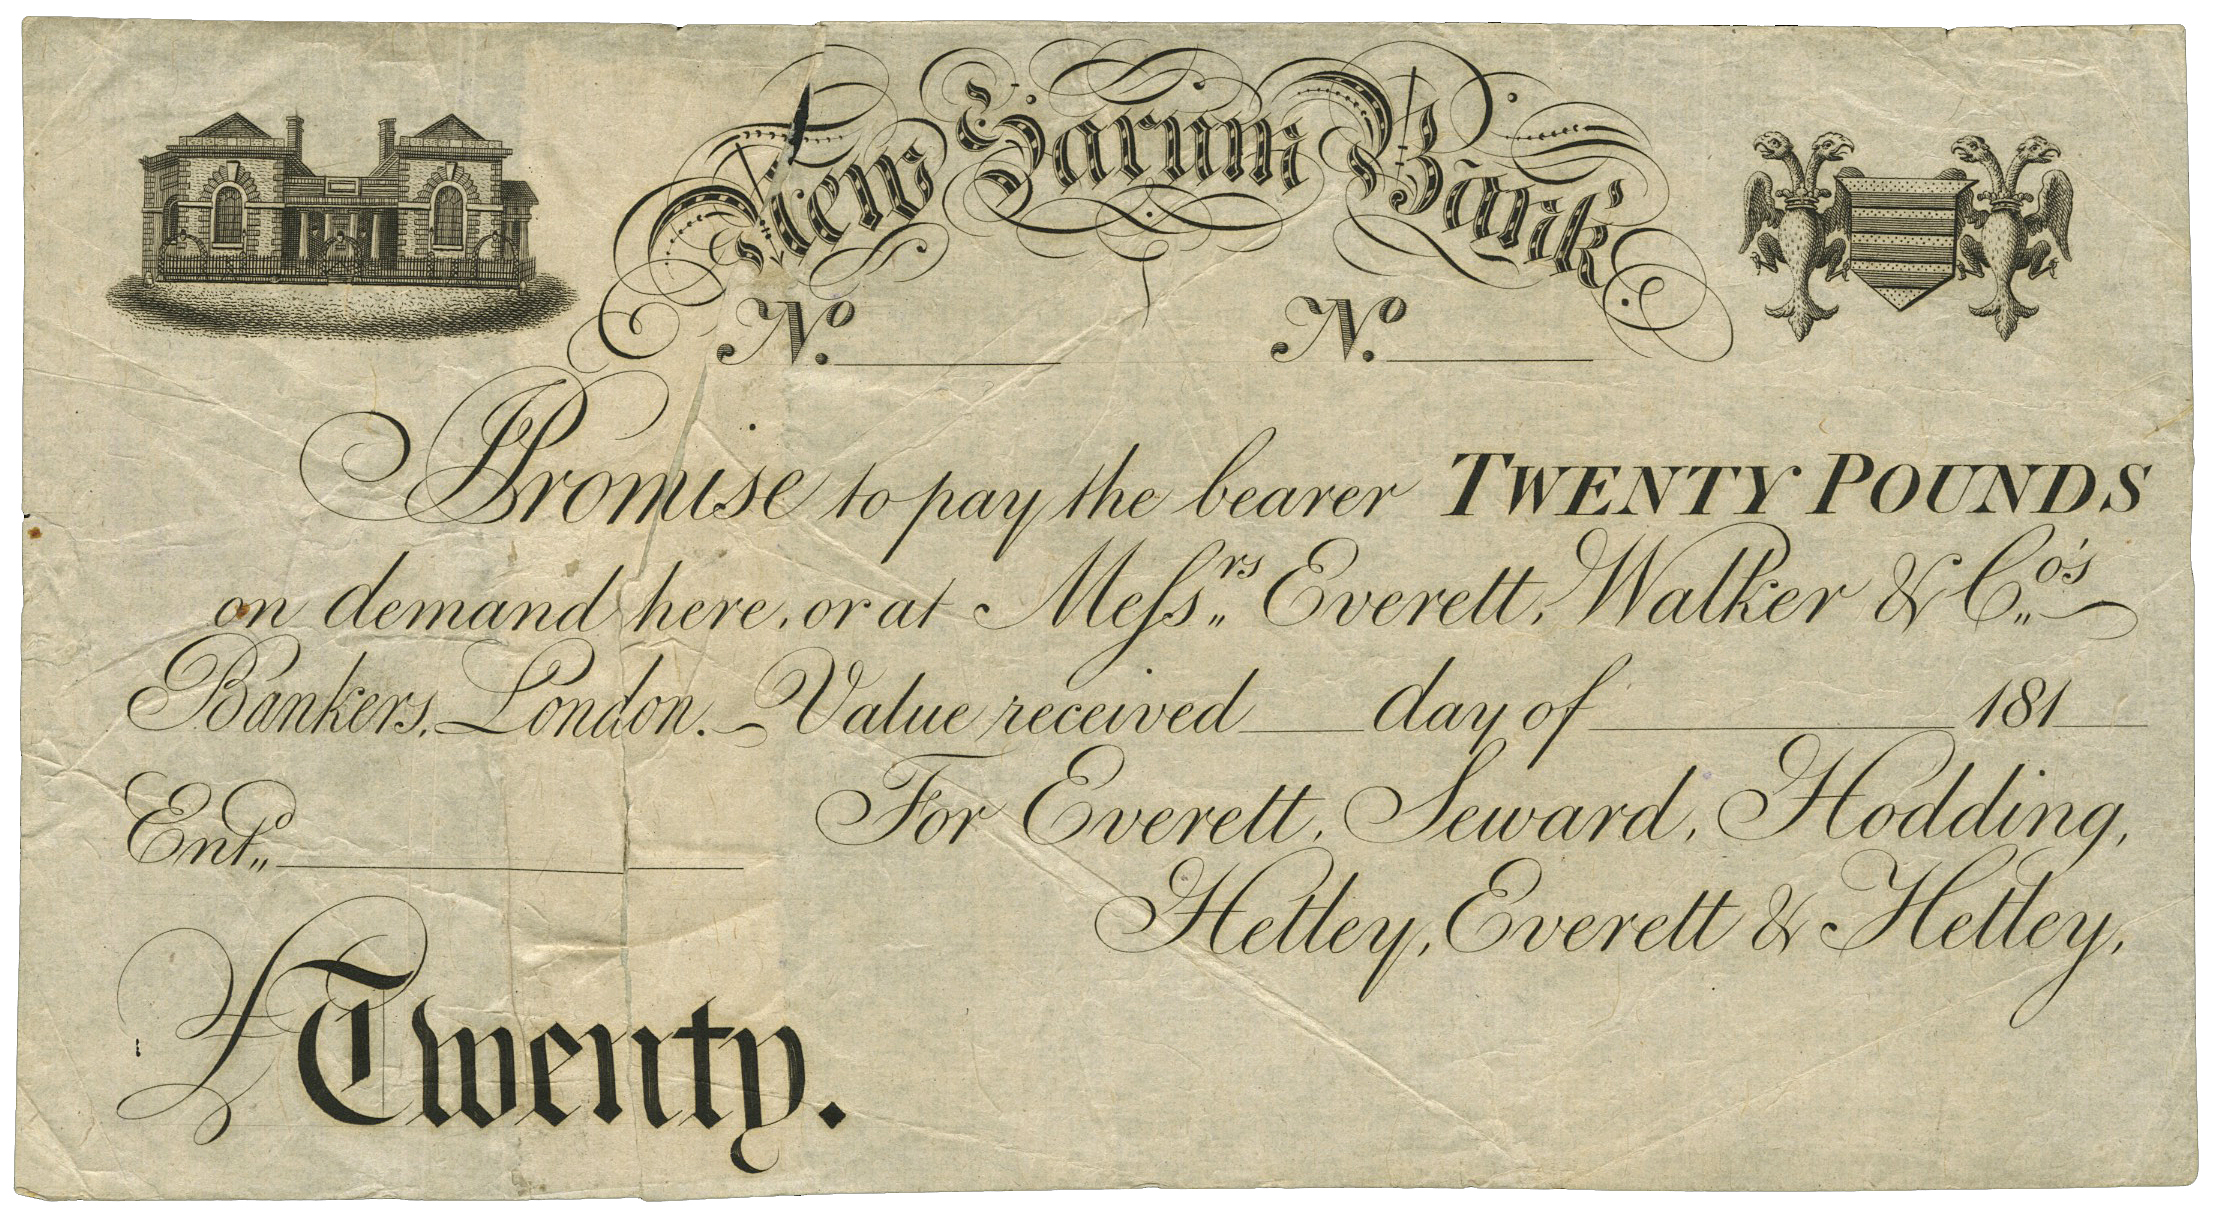 New Sarum Bank
No. No.
I Promise to pay the bearer TWENTY POUNDS
on demand here, or at Meſs.rs Everett, Walker & Co.'s
Bankers, London. – Value received day of 181
Ent.d
For Everett, Seward, Hodding,
Hetley, Everett & Hetley,
£ Twenty.